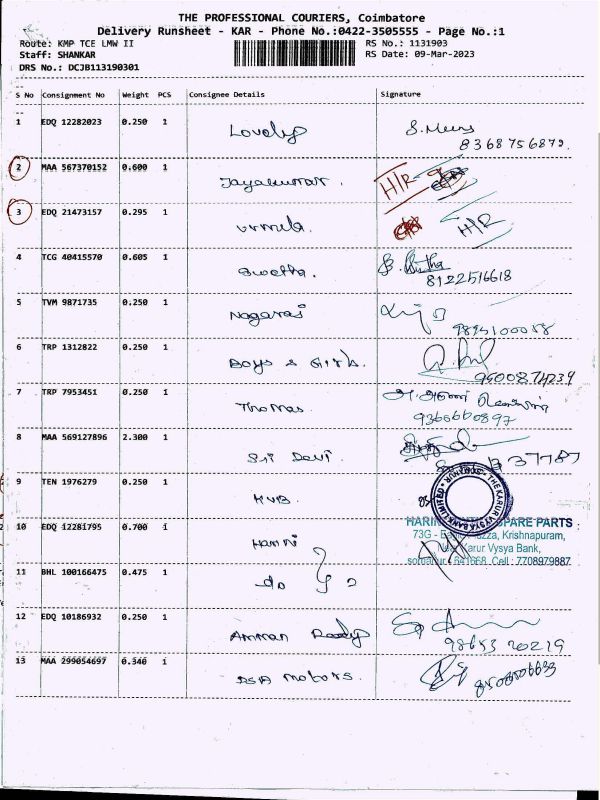 THE PROFESSIONAL COURIERS, Coimbatore
Delivery Runsheet - KAR - Phone No.:0422-3505555 - Page No.:1
Route: KMP TCE LMW II
RS No.: 1131903
Staff: SHANKAR
RS Date: 09-Mar-2023
DRS No.: DCJB113190301
S No Consignment No Weight PCS Consignee Details Signature
1 EDQ 12282023 0.250 1 Lovely
8368756879.
2 MAA 567370152 0.600 1 Jayakumar. H/R
3 EDQ 21473157 0.295 1 urmila. H/R
4 TCG 40415570 0.605 1 Swetha.
8122516618
5 TVM 9871735 0.250 1 Nagaraj
6 TRP 1312822 0.250 1 Boys & Girls.
7 TRP 7953451 0.250 1 Thomas
9366660897
8 MAA 569127896 2.300 1 Sri Devi.
9 TEN 1976279 0.250 1 KVB
THE KARUR VYSYA BANK LIMITED
SPARE PARTS
10 EDQ 12281795 0.700 1 Harini
73G - Krishnapuram,
Near Karur Vysya Bank,
641668. Cell : 7708979887
11 BHL 100166475 0.475 1 do
12 EDQ 10186932 0.250 1 Amman Ready
98653 20219
13 MAA 299054697 0.346 1 RSA Motors.